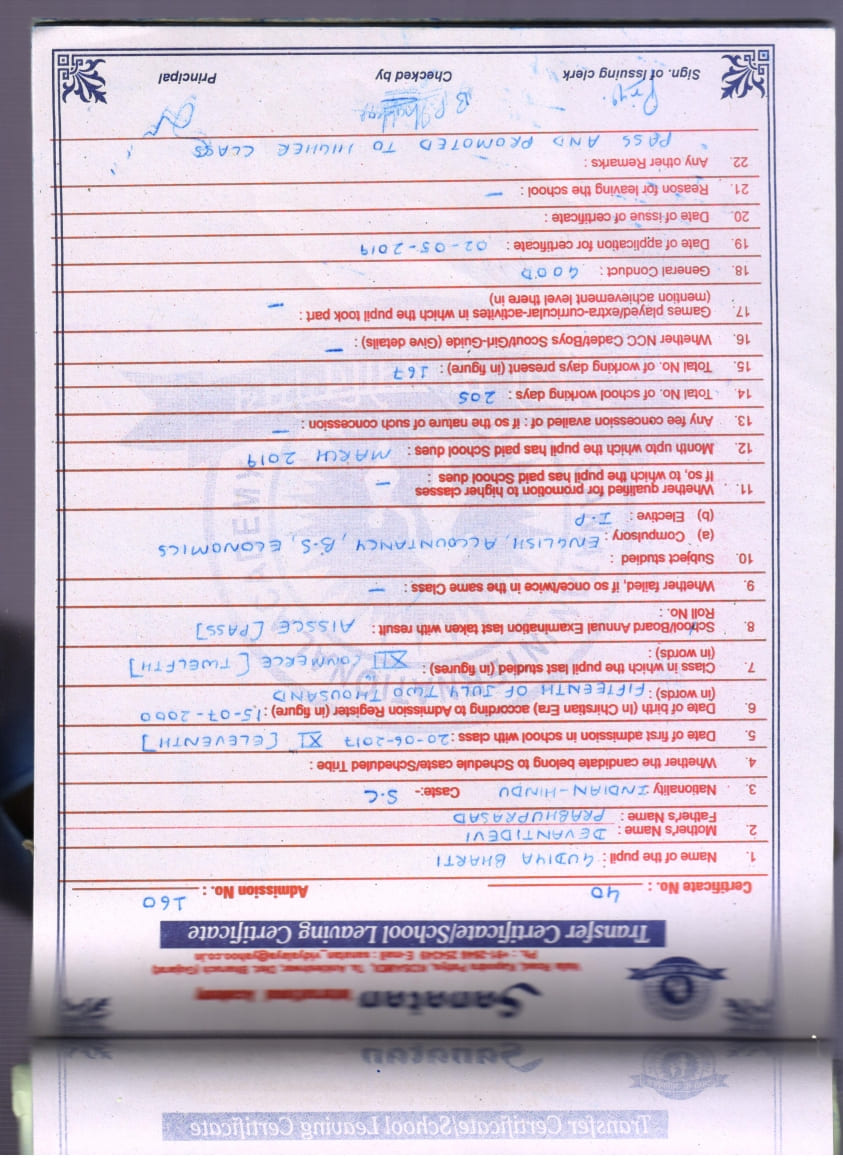 Sanatan International Academy
Valia Road, Kapondra Patiya, KOSAMDI, Ta. Ankleshwar, Dist. Bharuch (Gujarat)
Ph. : +91-2646 254349 E-mail : sanatan_vidyalaya@yahoo.co.in
Transfer Certificate/School Leaving Certificate
Certificate No. : 40 Admission No. : 160
1. Name of the pupil : GUDIYA BHARTI
2. Mother's Name : DEVANTIDEVI
Father's Name : PRABHUPRASAD
3. Nationality INDIAN-HINDU Caste:- S.C
4. Whether the candidate belong to Schedule caste/Scheduled Tribe :
5. Date of first admission in school with class : 20-06-2017 XI [ELEVENTH]
6. Date of birth (In Chirstian Era) according to Admission Register (in figure) : 15-07-2000
(in words) : FIFTEENTH OF JULY TWO THOUSAND
7. Class in which the pupil last studied (in figures) : XII COMMERCE [TWELFTH]
(in words) :
8. School/Board Annual Examination last taken with result : AISSCE [PASS]
Roll No. :
9. Whether failed, if so once/twice in the same Class : —
10. Subject studied :
(a) Compulsory : ENGLISH, ACCOUNTANCY, B.S, ECONOMICS
(b) Elective : I.P
11. Whether qualified for promotion to higher classes
If so, to which the pupil has paid School dues : —
12. Month upto which the pupil has paid School dues : MARCH 2019
13. Any fee concession availed of : if so the nature of such concession : —
14. Total No. of school working days : 205
15. Total No. of working days present (in figure) : 167
16. Whether NCC Cadet/Boys Scout/Girl-Guide (Give details) : —
17. Games played/extra-curricular-activites in which the pupil took part : —
(mention achievement level there in)
18. General Conduct : GOOD
19. Date of application for certificate : 02-05-2019
20. Date of issue of certificate :
21. Reason for leaving the school : —
22. Any other Remarks :
PASS AND PROMOTED TO HIGHER CLASS
Sign. of Issuing clerk Checked by Principal